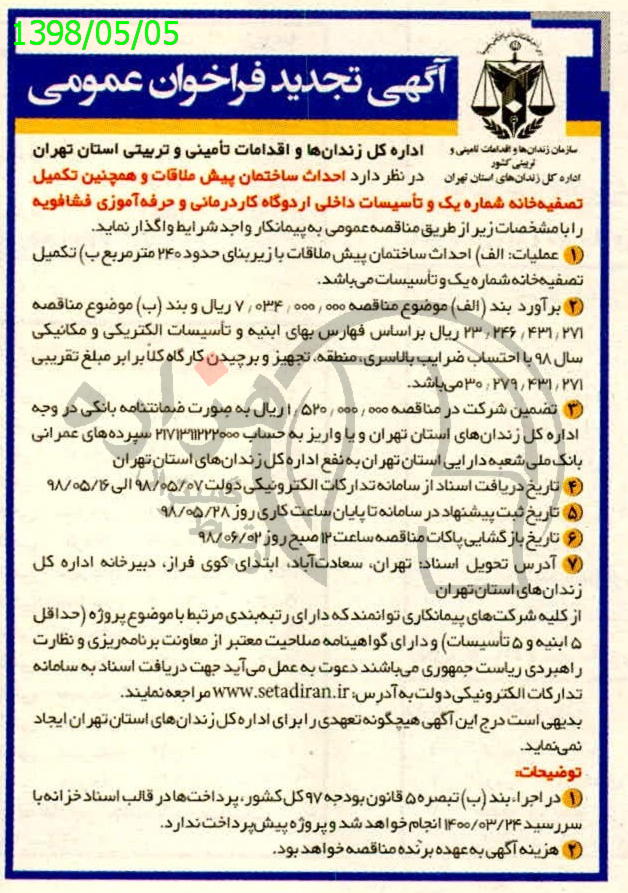 1398/05/05
آگهی تجدید فراخوان عمومی
سازمان زندان‌ها و اقدامات تامینی و تربیتی کشور
اداره کل زندان‌های استان تهران
اداره کل زندان‌ها و اقدامات تأمینی و تربیتی استان تهران
در نظر دارد احداث ساختمان پیش ملاقات و همچنین تکمیل
تصفیه‌خانه شماره یک و تأسیسات داخلی اردوگاه کاردرمانی و حرفه‌آموزی فشافویه
را با مشخصات زیر از طریق مناقصه عمومی به پیمانکار واجد شرایط واگذار نماید.
۱ عملیات: الف) احداث ساختمان پیش ملاقات با زیربنای حدود ۲۴۰ مترمربع ب) تکمیل
تصفیه‌خانه شماره یک و تأسیسات می‌باشد.
۲ برآورد بند (الف) موضوع مناقصه ۷,۰۳۴,۰۰۰,۰۰۰ ریال و بند (ب) موضوع مناقصه
۲۳,۲۴۶,۴۳۱,۲۷۱ ریال براساس فهارس بهای ابنیه و تأسیسات الکتریکی و مکانیکی
سال ۹۸ با احتساب ضرایب بالاسری، منطقه، تجهیز و برچیدن کارگاه کلاً برابر مبلغ تقریبی
۳۰,۲۷۹,۴۳۱,۲۷۱ می‌باشد.
۳ تضمین شرکت در مناقصه ۱,۵۲۰,۰۰۰,۰۰۰ ریال به صورت ضمانتنامه بانکی در وجه
اداره کل زندان‌های استان تهران و یا واریز به حساب ۲۱۷۱۳۱۱۲۲۲۰۰۰ سپرده‌های عمرانی
بانک ملی شعبه دارایی استان تهران به نفع اداره کل زندان‌های استان تهران
۴ تاریخ دریافت اسناد از سامانه تدارکات الکترونیکی دولت ۹۸/۰۵/۰۷ الی ۹۸/۰۵/۱۶
۵ تاریخ ثبت پیشنهاد در سامانه تا پایان ساعت کاری روز ۹۸/۰۵/۲۸
۶ تاریخ بازگشایی پاکات مناقصه ساعت ۱۲ صبح روز ۹۸/۰۶/۰۲
۷ آدرس تحویل اسناد: تهران، سعادت‌آباد، ابتدای کوی فراز، دبیرخانه اداره کل
زندان‌های استان تهران
از کلیه شرکت‌های پیمانکاری توانمند که دارای رتبه‌بندی مرتبط با موضوع پروژه (حداقل
۵ ابنیه و ۵ تأسیسات) و دارای گواهینامه صلاحیت معتبر از معاونت برنامه‌ریزی و نظارت
راهبردی ریاست جمهوری می‌باشند دعوت به عمل می‌آید جهت دریافت اسناد به سامانه
تدارکات الکترونیکی دولت به آدرس: www.setadiran.ir مراجعه نمایند.
بدیهی است درج این آگهی هیچگونه تعهدی را برای اداره کل زندان‌های استان تهران ایجاد
نمی‌نماید.
توضیحات:
۱ در اجراء بند (ب) تبصره ۵ قانون بودجه ۹۷ کل کشور، پرداخت‌ها در قالب اسناد خزانه با
سررسید ۱۴۰۰/۰۳/۲۴ انجام خواهد شد و پروژه پیش‌پرداخت ندارد.
۲ هزینه آگهی به عهده برنده مناقصه خواهد بود.